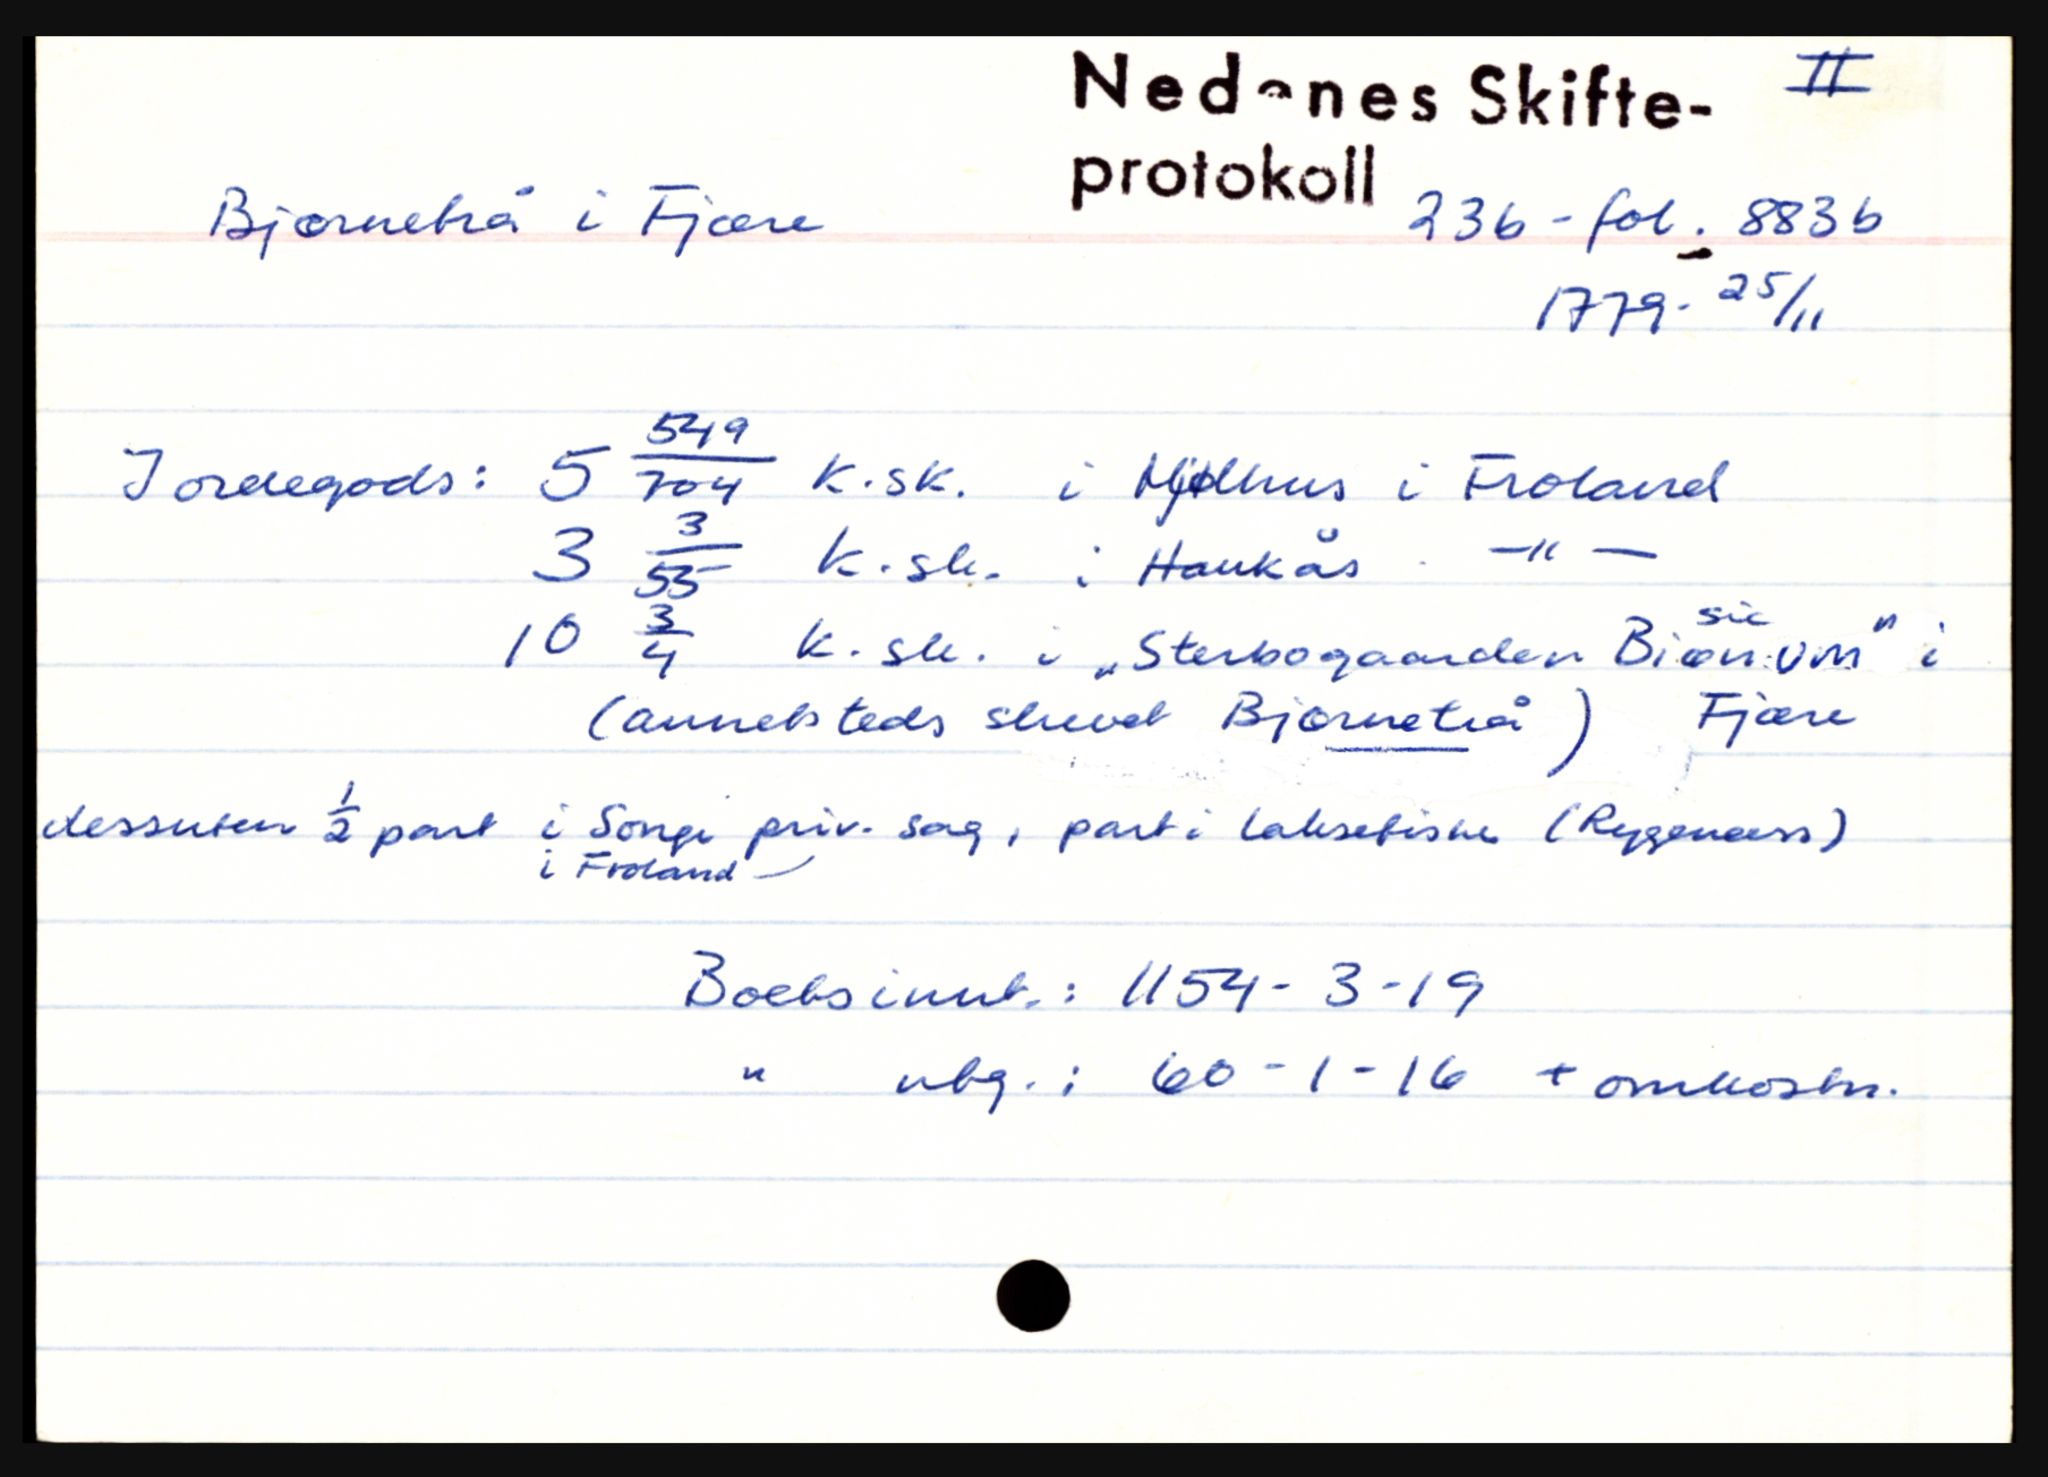 Nedenes Skifte- II
protokoll
Bjørnetrå i Fjære 23b - fol. 883b
1779. 25/11
Jordegods: 5 549/704 k.sk. i Mjølhus i Froland
3 3/55 k.sk. i Haukås -"-
10 3/4 k.sk. i „Sterbogaarden
sic
i
(annetsteds skrevet Bjørnetrå) Fjære
dessuten 1/2 part i Songe priv. sag, part i laksefiske (Rygenæss)
i Froland
Boets innt.: 1154-3-19
" utg.: 60-1-16 + omkostn.